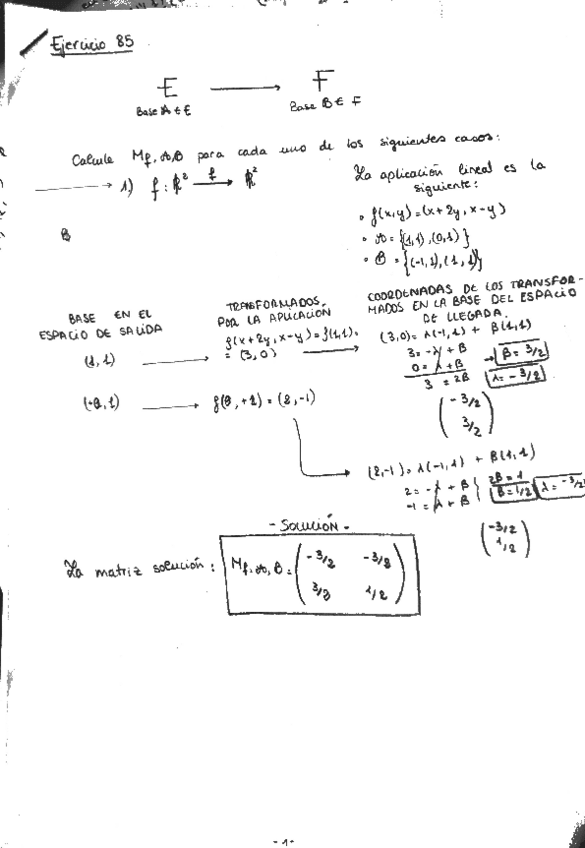 Ejercicio 85
E → F
Base A ∈ E Base B ∈ F
Calcule Mf, A, B para cada uno de los siguientes casos:
→ 1) f: R² →f R²
La aplicación lineal es la
siguiente:
• f(x,y) = (x+2y, x-y)
• A = {(1,1), (0,1)}
• B = {(-1,1), (1,1)}
B
BASE EN EL
ESPACIO DE SALIDA
TRANSFORMADOS
POR LA APLICACIÓN
COORDENADAS DE LOS TRANSFOR-
MADOS EN LA BASE DEL ESPACIO
DE LLEGADA.
(1,1) → f(x+2y, x-y) = f(1,1) =
= (3,0) →
(3,0) = λ(-1,1) + β(1,1)
3 = -λ + β
0 = λ + β
3 = 2β
→ β = 3/2
λ = -3/2
(-3/2
3/2)
(0,1) → f(0,+1) = (2,-1)
→ (2,-1) = λ(-1,1) + β(1,1)
2 = -λ + β
-1 = λ + β
2β = 1
β = 1/2 λ = -3/2
(-3/2
1/2)
- SOLUCIÓN -
La matriz solución: Mf, A, B = (-3/2 -3/2
3/2 1/2)
- 1 -